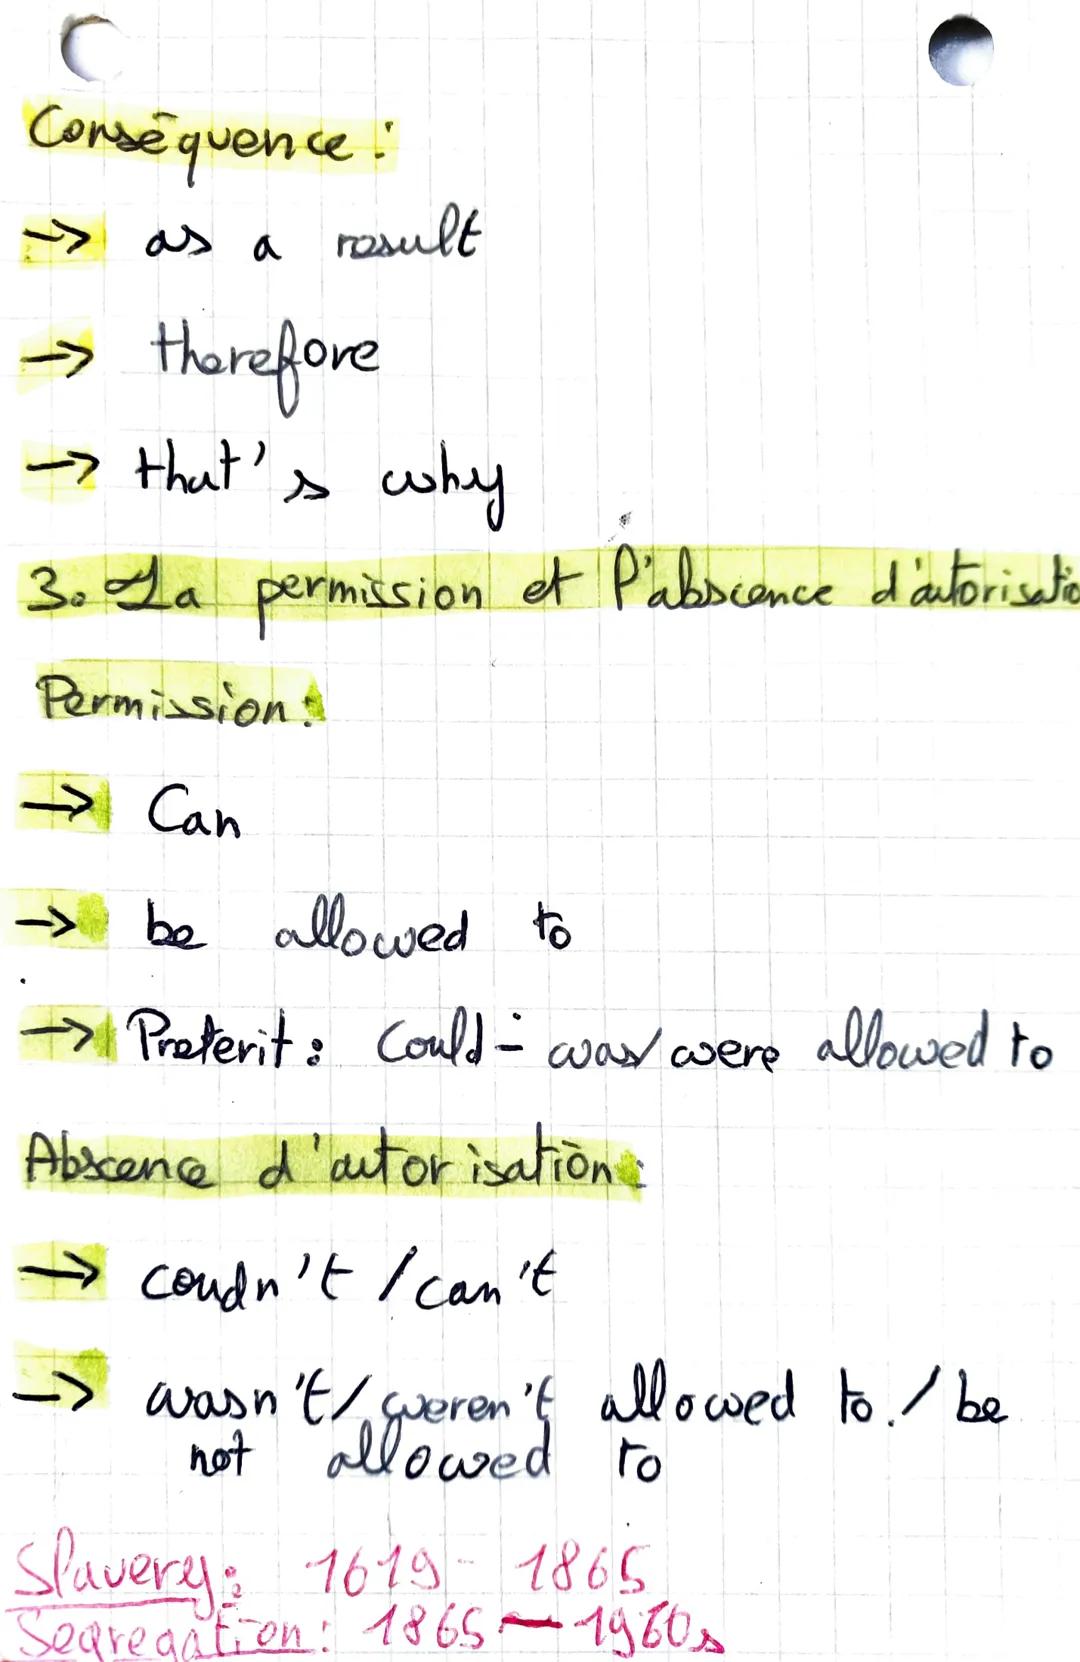 Conséquence :
→ as a result
→ therefore
→ that's why
3. La permission et l'abscence d'autorisatio
Permission :
→ Can
→ be allowed to
→ Preterit : Could - was/were allowed to
Abscence d'autorisation :
→ coudn't / can't
→ wasn't/weren't allowed to. / be
not allowed to
Slavery : 1619 - 1865
Segregation : 1865 - 1960s